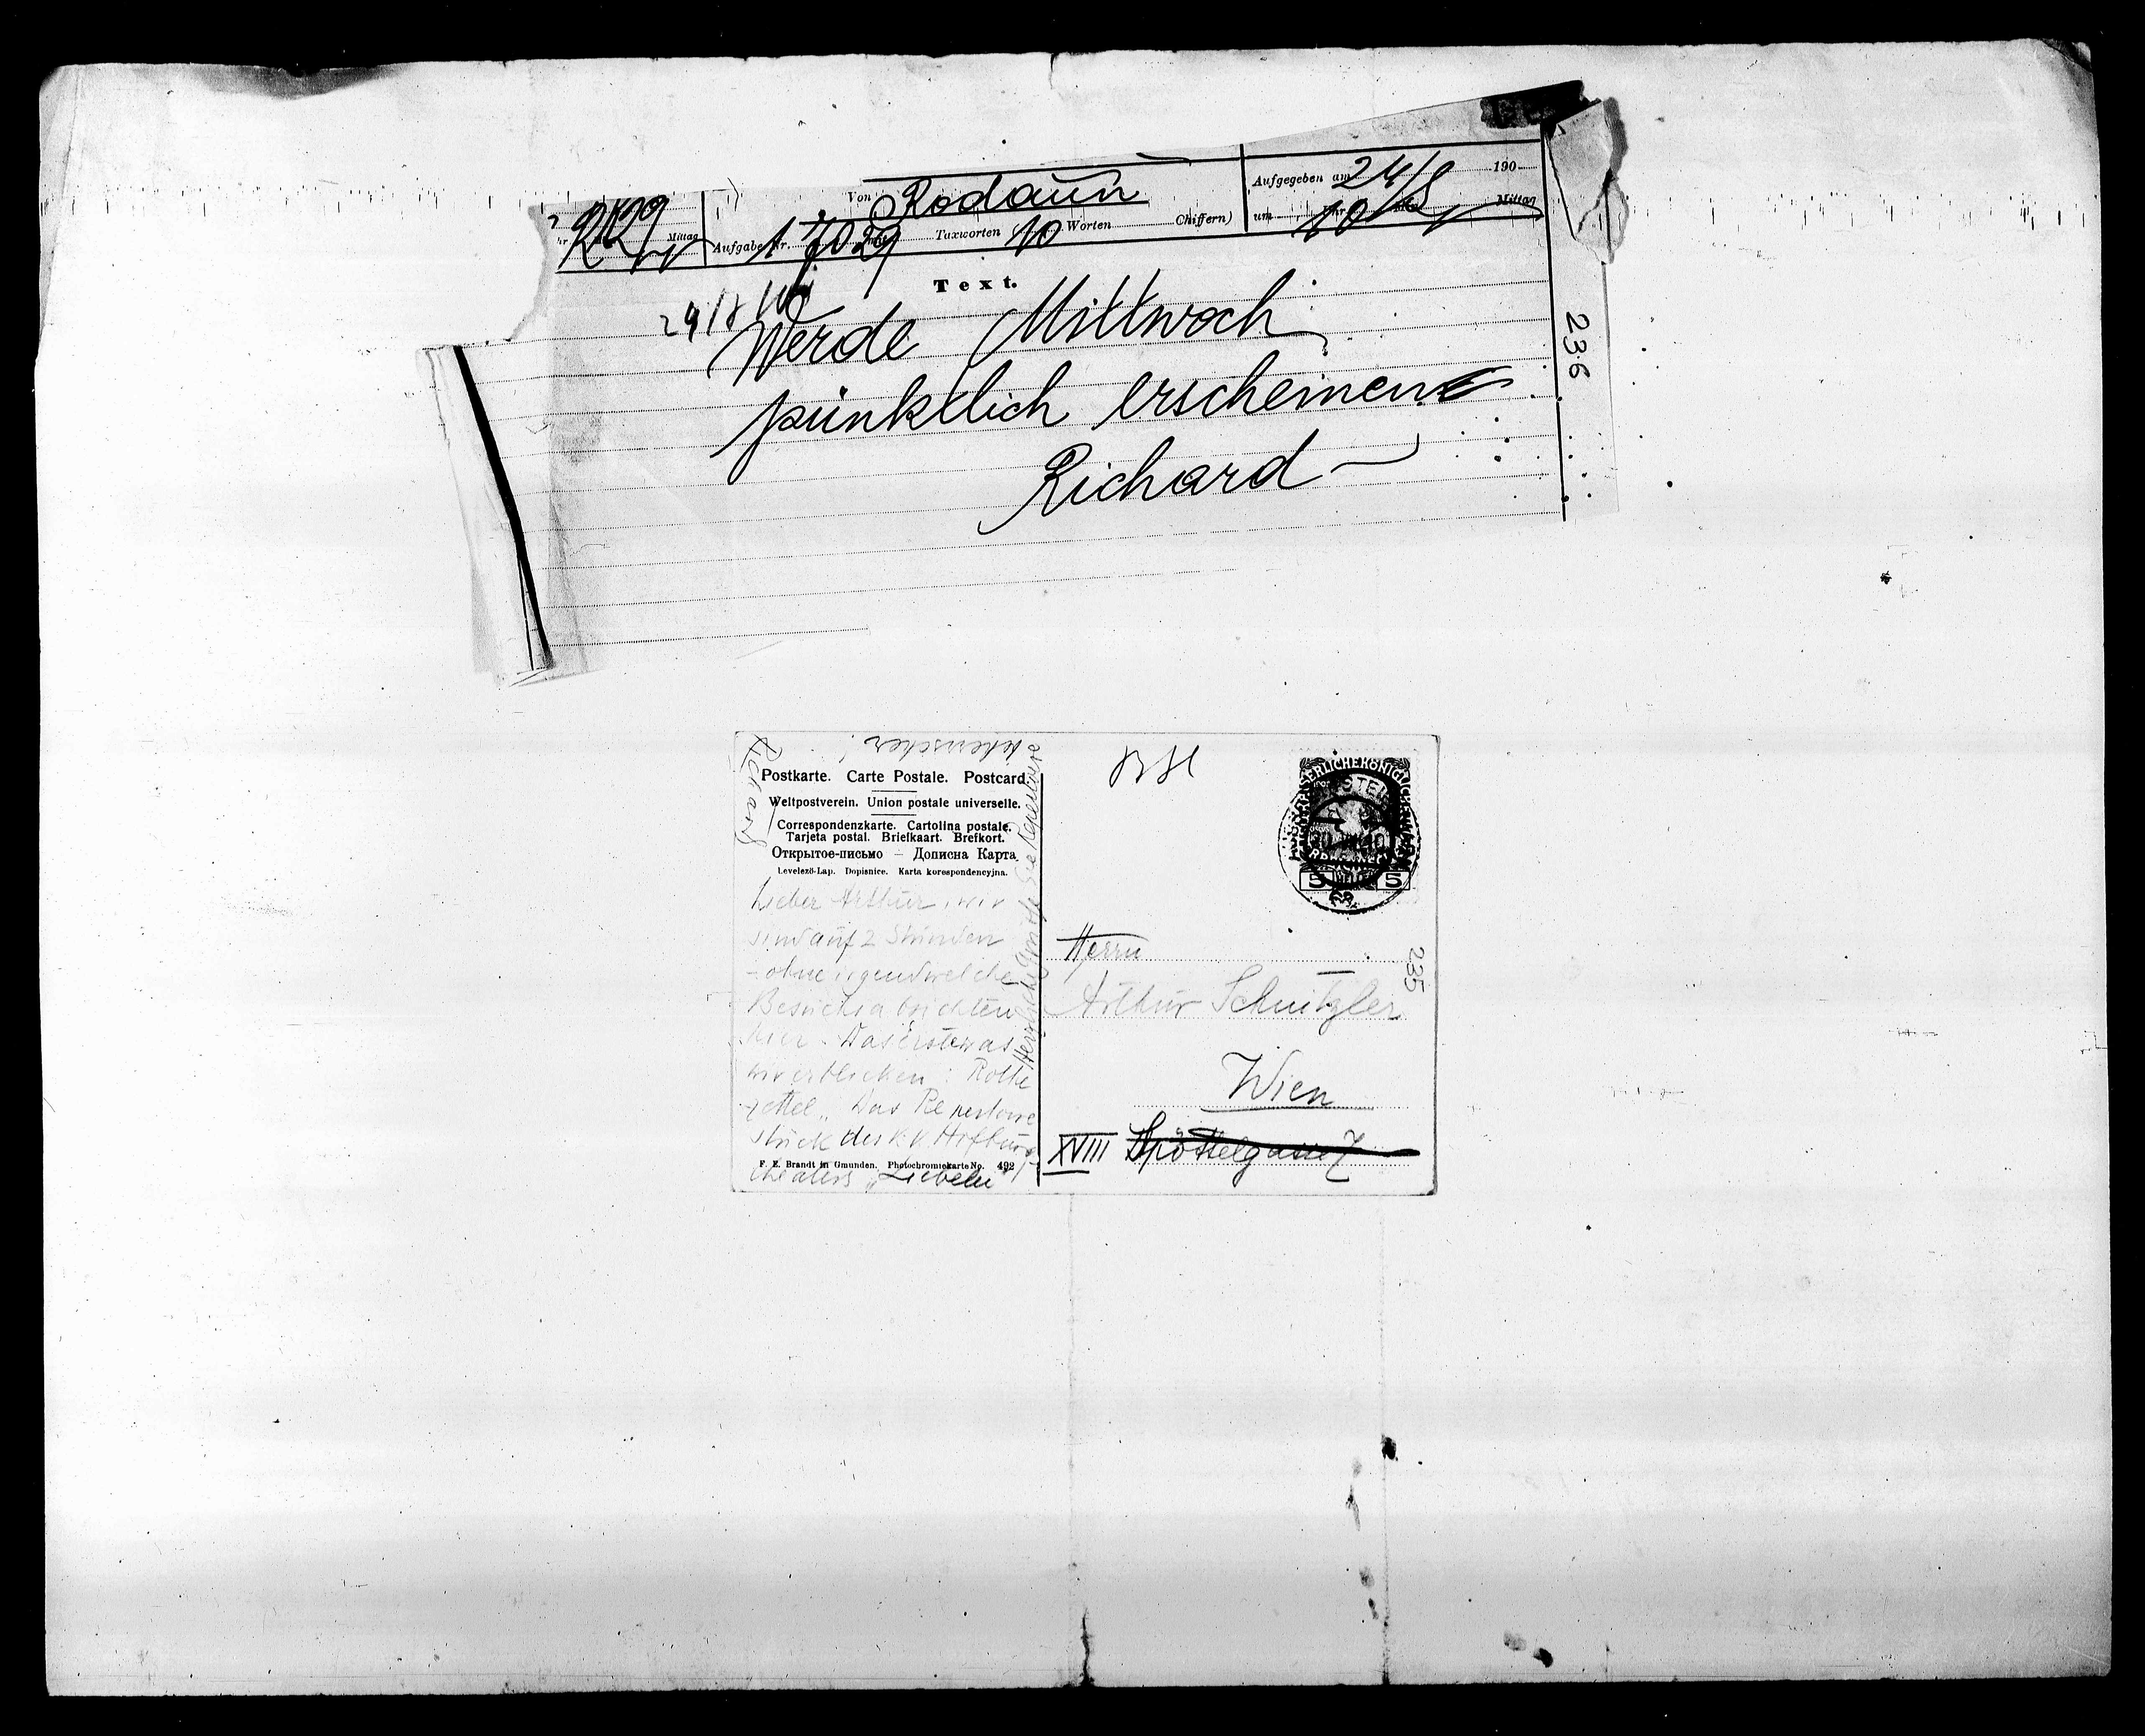 Von Rodaun
Aufgegeben am 24/8 190
um 10 Uhr Min Mittag
Mittag
Aufgabe Nr. 7029 Taxworten 10 Worten Chiffern)
Text.
24/8
Werde Mittwoch
pünktlich erscheinen
Richard
236
Postkarte. Carte Postale. Postcard.
Weltpostverein. Union postale universelle.
Correspondenzkarte. Cartolina postale.
Tarjeta postal. Briefkaart. Brefkort.
Открытое-письмо – Дописна Карта
Levelező-Lap. Dopisnice. Karta korespondencyjna.
Lieber Arthur, wir
sind auf 2 Stunden
– ohne irgendwelche
Besuchsabsichten
hier. Das erste was
wir erblicken: Rothe
zettel „Das Repertoire
stück des k. k. Hofburg
theaters „Liebelei"
Herzliche Grüße Sie Repertoire
Richard
F. E. Brandt in Gmunden. Photochromiekarte No. 492
BH
5 5
Herrn
Arthur Schnitzler
Wien
XVIII Spöttelgasse 7
235